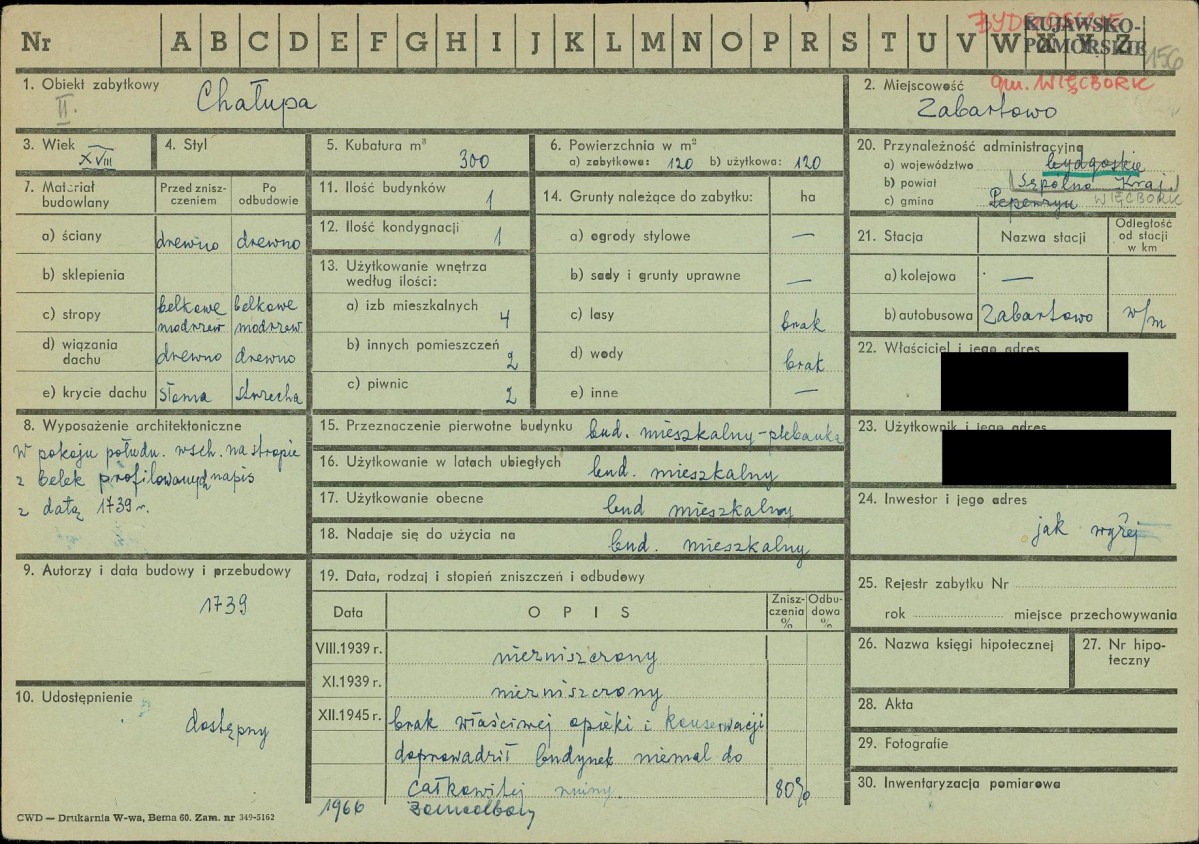 BYDGOSKIE
KUJAWSKO-
POMORSKIE
Nr A B C D E F G H I J K L M N O P R S T U V W X Y Z
156
1. Obiekt zabytkowy
II.
Chałupa
2. Miejscowość
gm. WIĘCBORK
Zabartowo
3. Wiek
XVIII
4. Styl
5. Kubatura m³
300
6. Powierzchnia w m²
a) zabytkowa: 120 b) użytkowa: 120
7. Materiał budowlany
Przed znisz-
czeniem
Po
odbudowie
a) ściany drewno drewno
b) sklepienia
c) stropy belkowe belkowe
modrzew modrzew
d) wiązania
dachu drewno drewno
e) krycie dachu słoma strzecha
11. Ilość budynków
1
12. Ilość kondygnacji
1
13. Użytkowanie wnętrza
według ilości:
a) izb mieszkalnych
4
b) innych pomieszczeń
2
c) piwnic
2
14. Grunty należące do zabytku: ha
a) ogrody stylowe —
b) sady i grunty uprawne —
c) lasy brak
d) wody brak
e) inne —
20. Przynależność administracyjna
a) województwo bydgoskie
b) powiat Szpólno Kraj.
c) gmina Peperzyn WIĘCBORK
21. Stacja Nazwa stacji Odległość
od stacji
w km
a) kolejowa —
b) autobusowa Zabartowo w/m
22. Właściciel i jego adres
23. Użytkownik i jego adres
24. Inwestor i jego adres
jak wyżej
8. Wyposażenie architektoniczne
W pokoju połudn. wsch. na stropie
z belek profilowanych napis
z datą 1739 r.
15. Przeznaczenie pierwotne budynku bud. mieszkalny-plebanka
16. Użytkowanie w latach ubiegłych bud. mieszkalny
17. Użytkowanie obecne bud mieszkalny
18. Nadaje się do użycia na bud. mieszkalny
9. Autorzy i data budowy i przebudowy
1739
10. Udostępnienie
dostępny
19. Data, rodzaj i stopień zniszczeń i odbudowy
Data OPIS Znisz-
czenia
% Odbu-
dowa
%
VIII.1939 r. niezniszczony
XI.1939 r. niezniszczony
XII.1945 r. brak właściwej opieki i konserwacji
doprowadził budynek niemal do
całkowitej ruiny. 80%
1966
25. Rejestr zabytku Nr
rok miejsce przechowywania
26. Nazwa księgi hipotecznej
27. Nr hipo-
teczny
28. Akta
29. Fotografie
30. Inwentaryzacja pomiarowa
CWD — Drukarnia W-wa, Bema 60. Zam. nr 349-5162